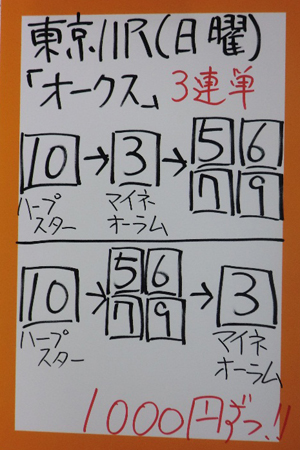 東京11R(日曜)
「オークス」3連単
10→3→5 6
7 9
ハープスター
マイネオーラム
10→5 6
7 9→3
ハープスター
マイネオーラム
1000円ずつ!!